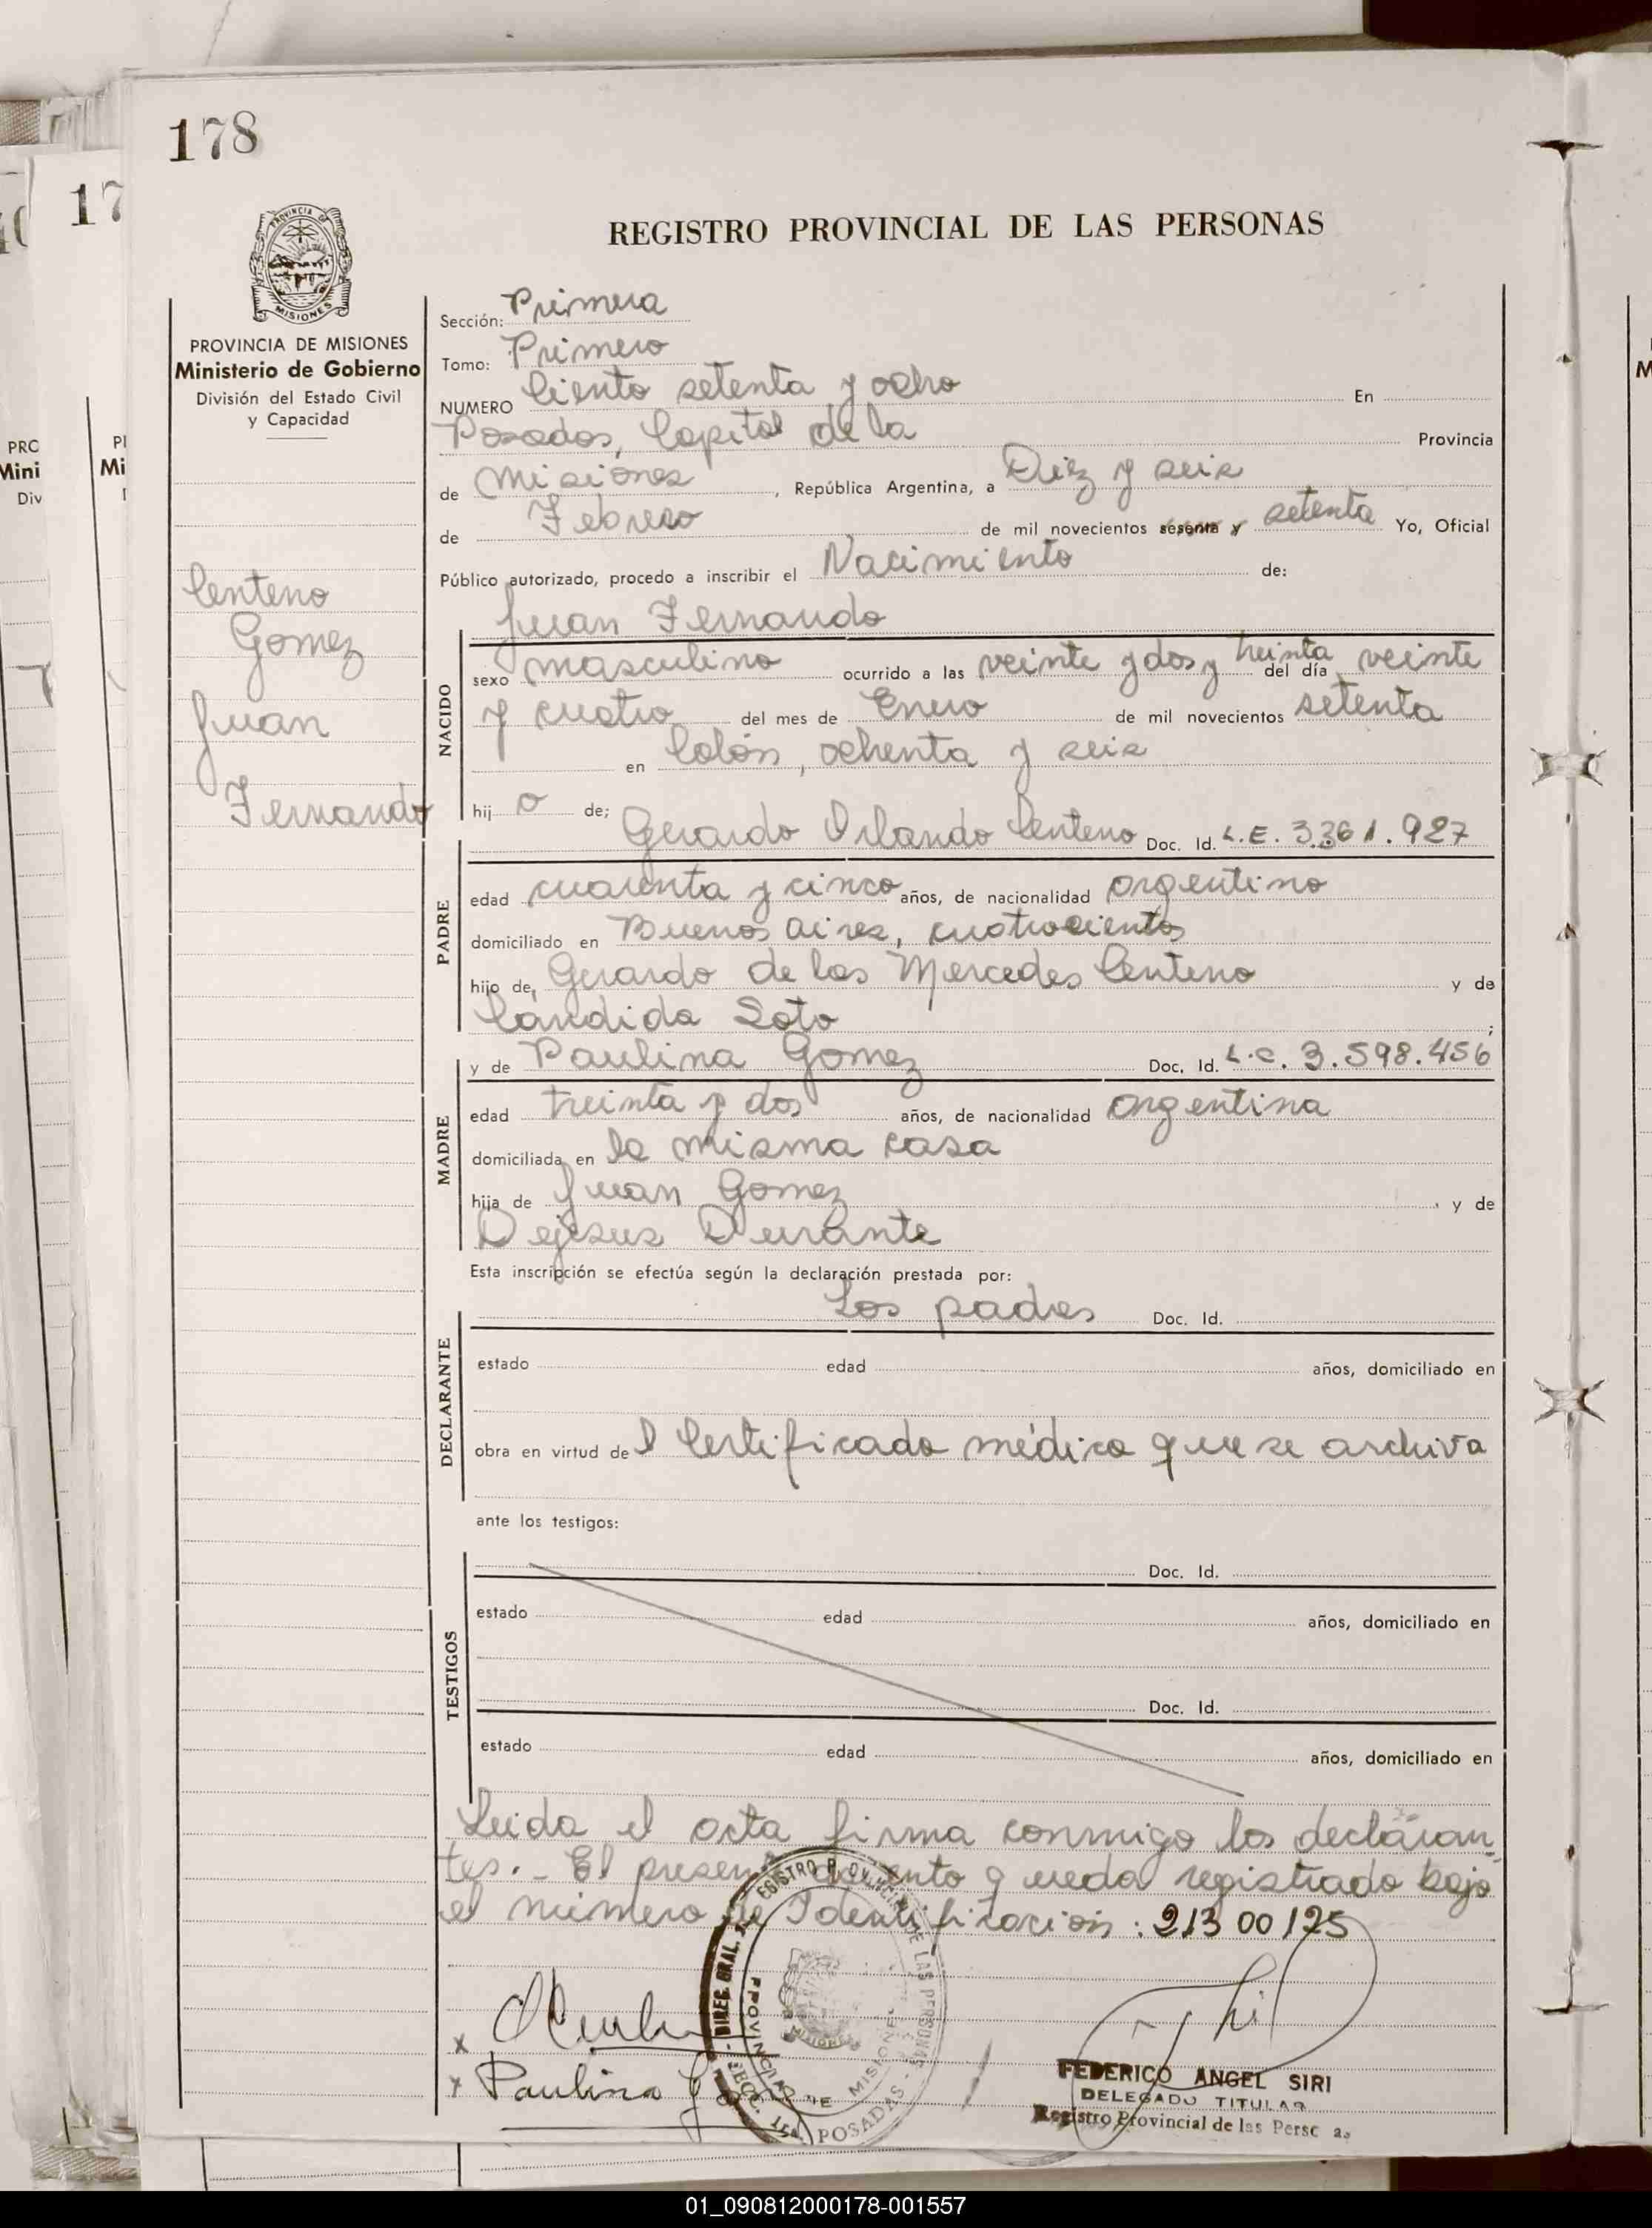 178
17
REGISTRO PROVINCIAL DE LAS PERSONAS
PROVINCIA DE
MISIONES
PROVINCIA DE MISIONES
Ministerio de Gobierno
División del Estado Civil
y Capacidad
Centeno
Gomez
Juan
Fernando
Sección: Primera
Tomo: Primero
NUMERO Ciento setenta y ocho En
Posadas, Capital de la Provincia
de Misiones, República Argentina, a Diez y seis
de Febrero de mil novecientos sesenta y setenta Yo, Oficial
Público autorizado, procedo a inscribir el Nacimiento de:
Juan Fernando
NACIDO
sexo masculino ocurrido a las veinte y dos y treinta del día veinte
y cuatro del mes de Enero de mil novecientos setenta
en Colón, ochenta y seis
hij o de;
Gerardo Orlando Centeno Doc. Id. L.E. 3.361.927
PADRE
edad cuarenta y cinco años, de nacionalidad argentino
domiciliado en Buenos Aires, cuatrocientos
hijo de, Gerardo de las Mercedes Centeno y de
Cándida Soto;
y de Paulina Gomez Doc. Id. L.C. 3.598.456
MADRE
edad treinta y dos años, de nacionalidad argentina
domiciliada en la misma casa
hija de Juan Gomez y de
Dejesus Durante
Esta inscripción se efectúa según la declaración prestada por:
Los padres Doc. Id.
DECLARANTE
estado edad años, domiciliado en
obra en virtud del Certificado médico que se archiva
ante los testigos:
TESTIGOS
Doc. Id.
estado edad años, domiciliado en
Doc. Id.
estado edad años, domiciliado en
Leida el acta firma conmigo los declaran-
tes.- El presente queda registrado bajo
el número de Identificación: 21300125
x
x Paulina G
REGISTRO PROVINCIAL DE LAS PERSONAS - POSADAS - SECC. 1ra - DIREC. GRAL.
PROVINCIA DE MISIONES
FEDERICO ANGEL SIRI
DELEGADO TITULAR
Registro Provincial de las Persc as
PRO
Mini
Div
Mi
01_090812000178-001557